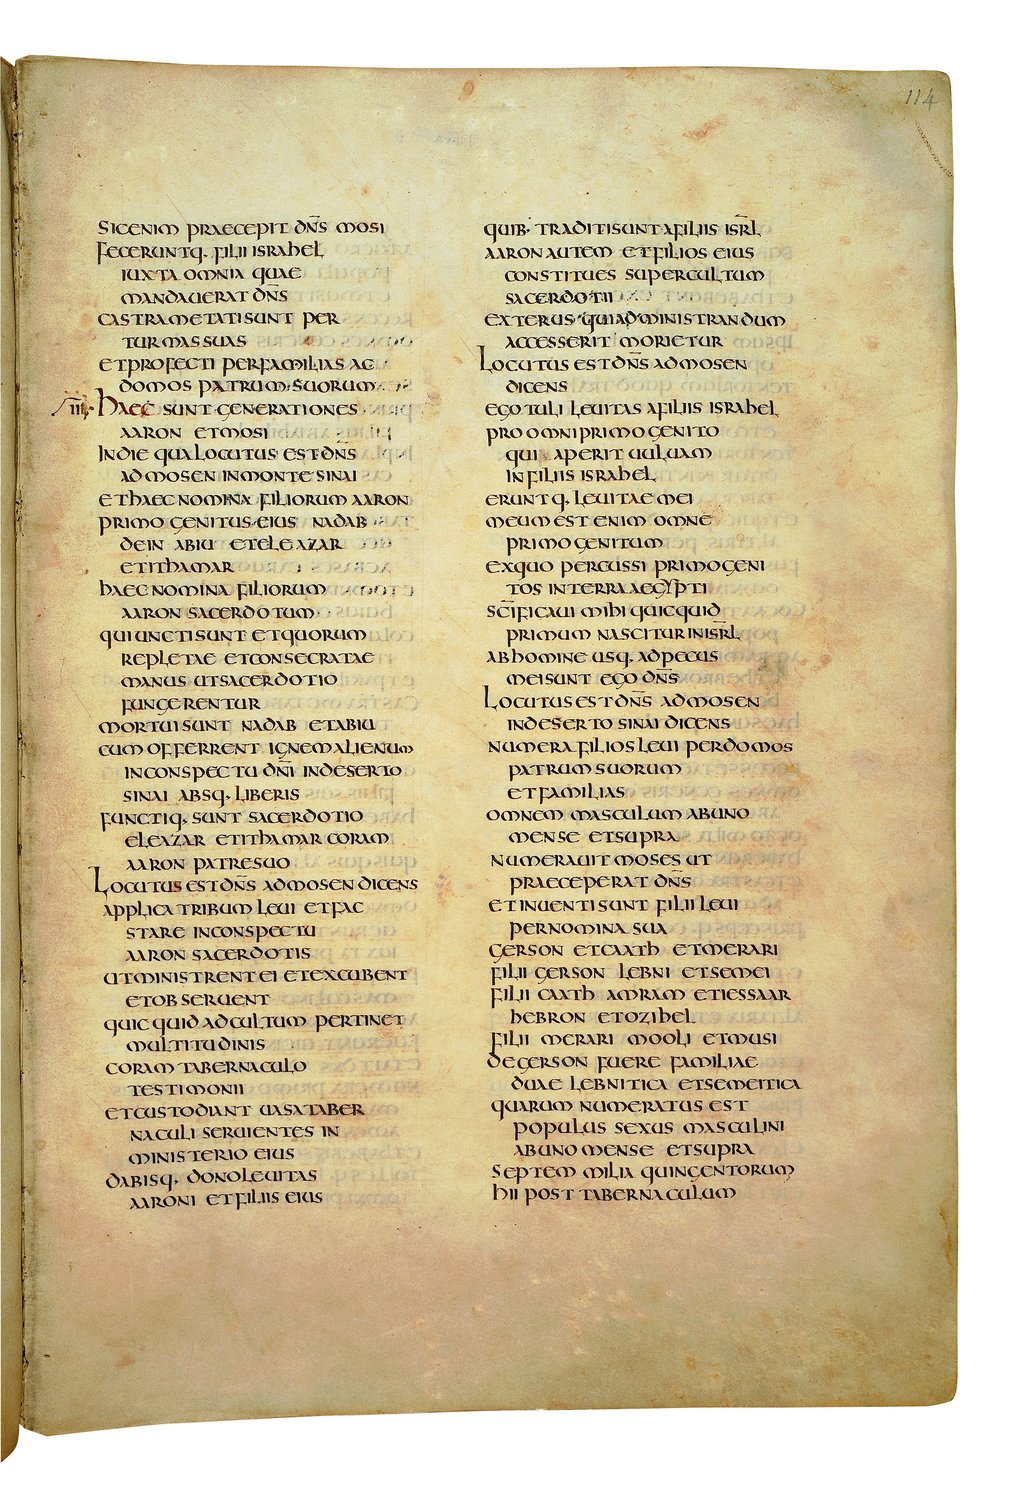 114
SICENIM PRAECEPIT DNS MOSI
FECERUNTQ. FILII ISRAHEL
IUXTA OMNIA QUAE
MANDAUERAT DNS
CASTRAMETATI SUNT PER
TURMAS SUAS
ET PROFECTI PER FAMILIAS AC
DOMOS PATRUM SUORUM
IIII. HAEC SUNT GENERATIONES
AARON ET MOSI
IN DIE QUA LOCUTUS EST DNS
AD MOSEN IN MONTE SINAI
ET HAEC NOMINA FILIORUM AARON
PRIMOGENITUS EIUS NADAB
DEIN ABIU ET ELEAZAR
ET ITHAMAR
HAEC NOMINA FILIORUM
AARON SACERDOTUM
QUI UNCTI SUNT ET QUORUM
REPLETAE ET CONSECRATAE
MANUS UT SACERDOTIO
FUNGERENTUR
MORTUI SUNT NADAB ET ABIU
CUM OFFERRENT IGNEM ALIENUM
IN CONSPECTU DNI IN DESERTO
SINAI ABSQ. LIBERIS
FUNCTIQ. SUNT SACERDOTIO
ELEAZAR ET ITHAMAR CORAM
AARON PATRE SUO
LOCUTUS EST DNS AD MOSEN DICENS
APPLICA TRIBUM LEUI ET FAC
STARE IN CONSPECTU
AARON SACERDOTIS
UT MINISTRENT EI ET EXCUBENT
ET OBSERUENT
QUICQUID AD CULTUM PERTINET
MULTITUDINIS
CORAM TABERNACULO
TESTIMONII
ET CUSTODIANT UASA TABER
NACULI SERUIENTES IN
MINISTERIO EIUS
DABISQ. DONO LEUITAS
AARONI ET FILIIS EIUS
QUIB· TRADITI SUNT A FILIIS ISRL
AARON AUTEM ET FILIOS EIUS
CONSTITUES SUPER CULTUM
SACERDOTII
EXTERUS QUI AD MINISTRANDUM
ACCESSERIT MORIETUR
LOCUTUS EST DNS AD MOSEN
DICENS
EGO TULI LEUITAS A FILIIS ISRAHEL
PRO OMNI PRIMOGENITO
QUI APERIT UULUAM
IN FILIIS ISRAHEL
ERUNTQ. LEUITAE MEI
MEUM EST ENIM OMNE
PRIMOGENITUM
EX QUO PERCUSSI PRIMOGENI
TOS IN TERRA AEGYPTI
SCIFICAUI MIHI QUICQUID
PRIMUM NASCITUR IN ISRL
AB HOMINE USQ. AD PECUS
MEI SUNT EGO DNS
LOCUTUS EST DNS AD MOSEN
IN DESERTO SINAI DICENS
NUMERA FILIOS LEUI PER DOMOS
PATRUM SUORUM
ET FAMILIAS
OMNEM MASCULUM AB UNO
MENSE ET SUPRA
NUMERAUIT MOSES UT
PRAECEPERAT DNS
ET INUENTI SUNT FILII LEUI
PER NOMINA SUA
GERSON ET CAATH ET MERARI
FILII GERSON LEBNI ET SEMEI
FILII CAATH AMRAM ET IESSAAR
HEBRON ET OZIHEL
FILII MERARI MOOLI ET MUSI
DE GERSON FUERE FAMILIAE
DUAE LEBNITICA ET SEMEITICA
QUARUM NUMERATUS EST
POPULUS SEXUS MASCULINI
AB UNO MENSE ET SUPRA
SEPTEM MILIA QUINGENTORUM
HII POST TABERNACULUM